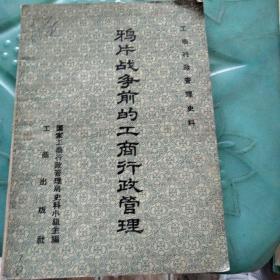 工商行政管理史料
鸦片战争前的工商行政管理
国家工商行政管理局史料小组主编
工商出版社